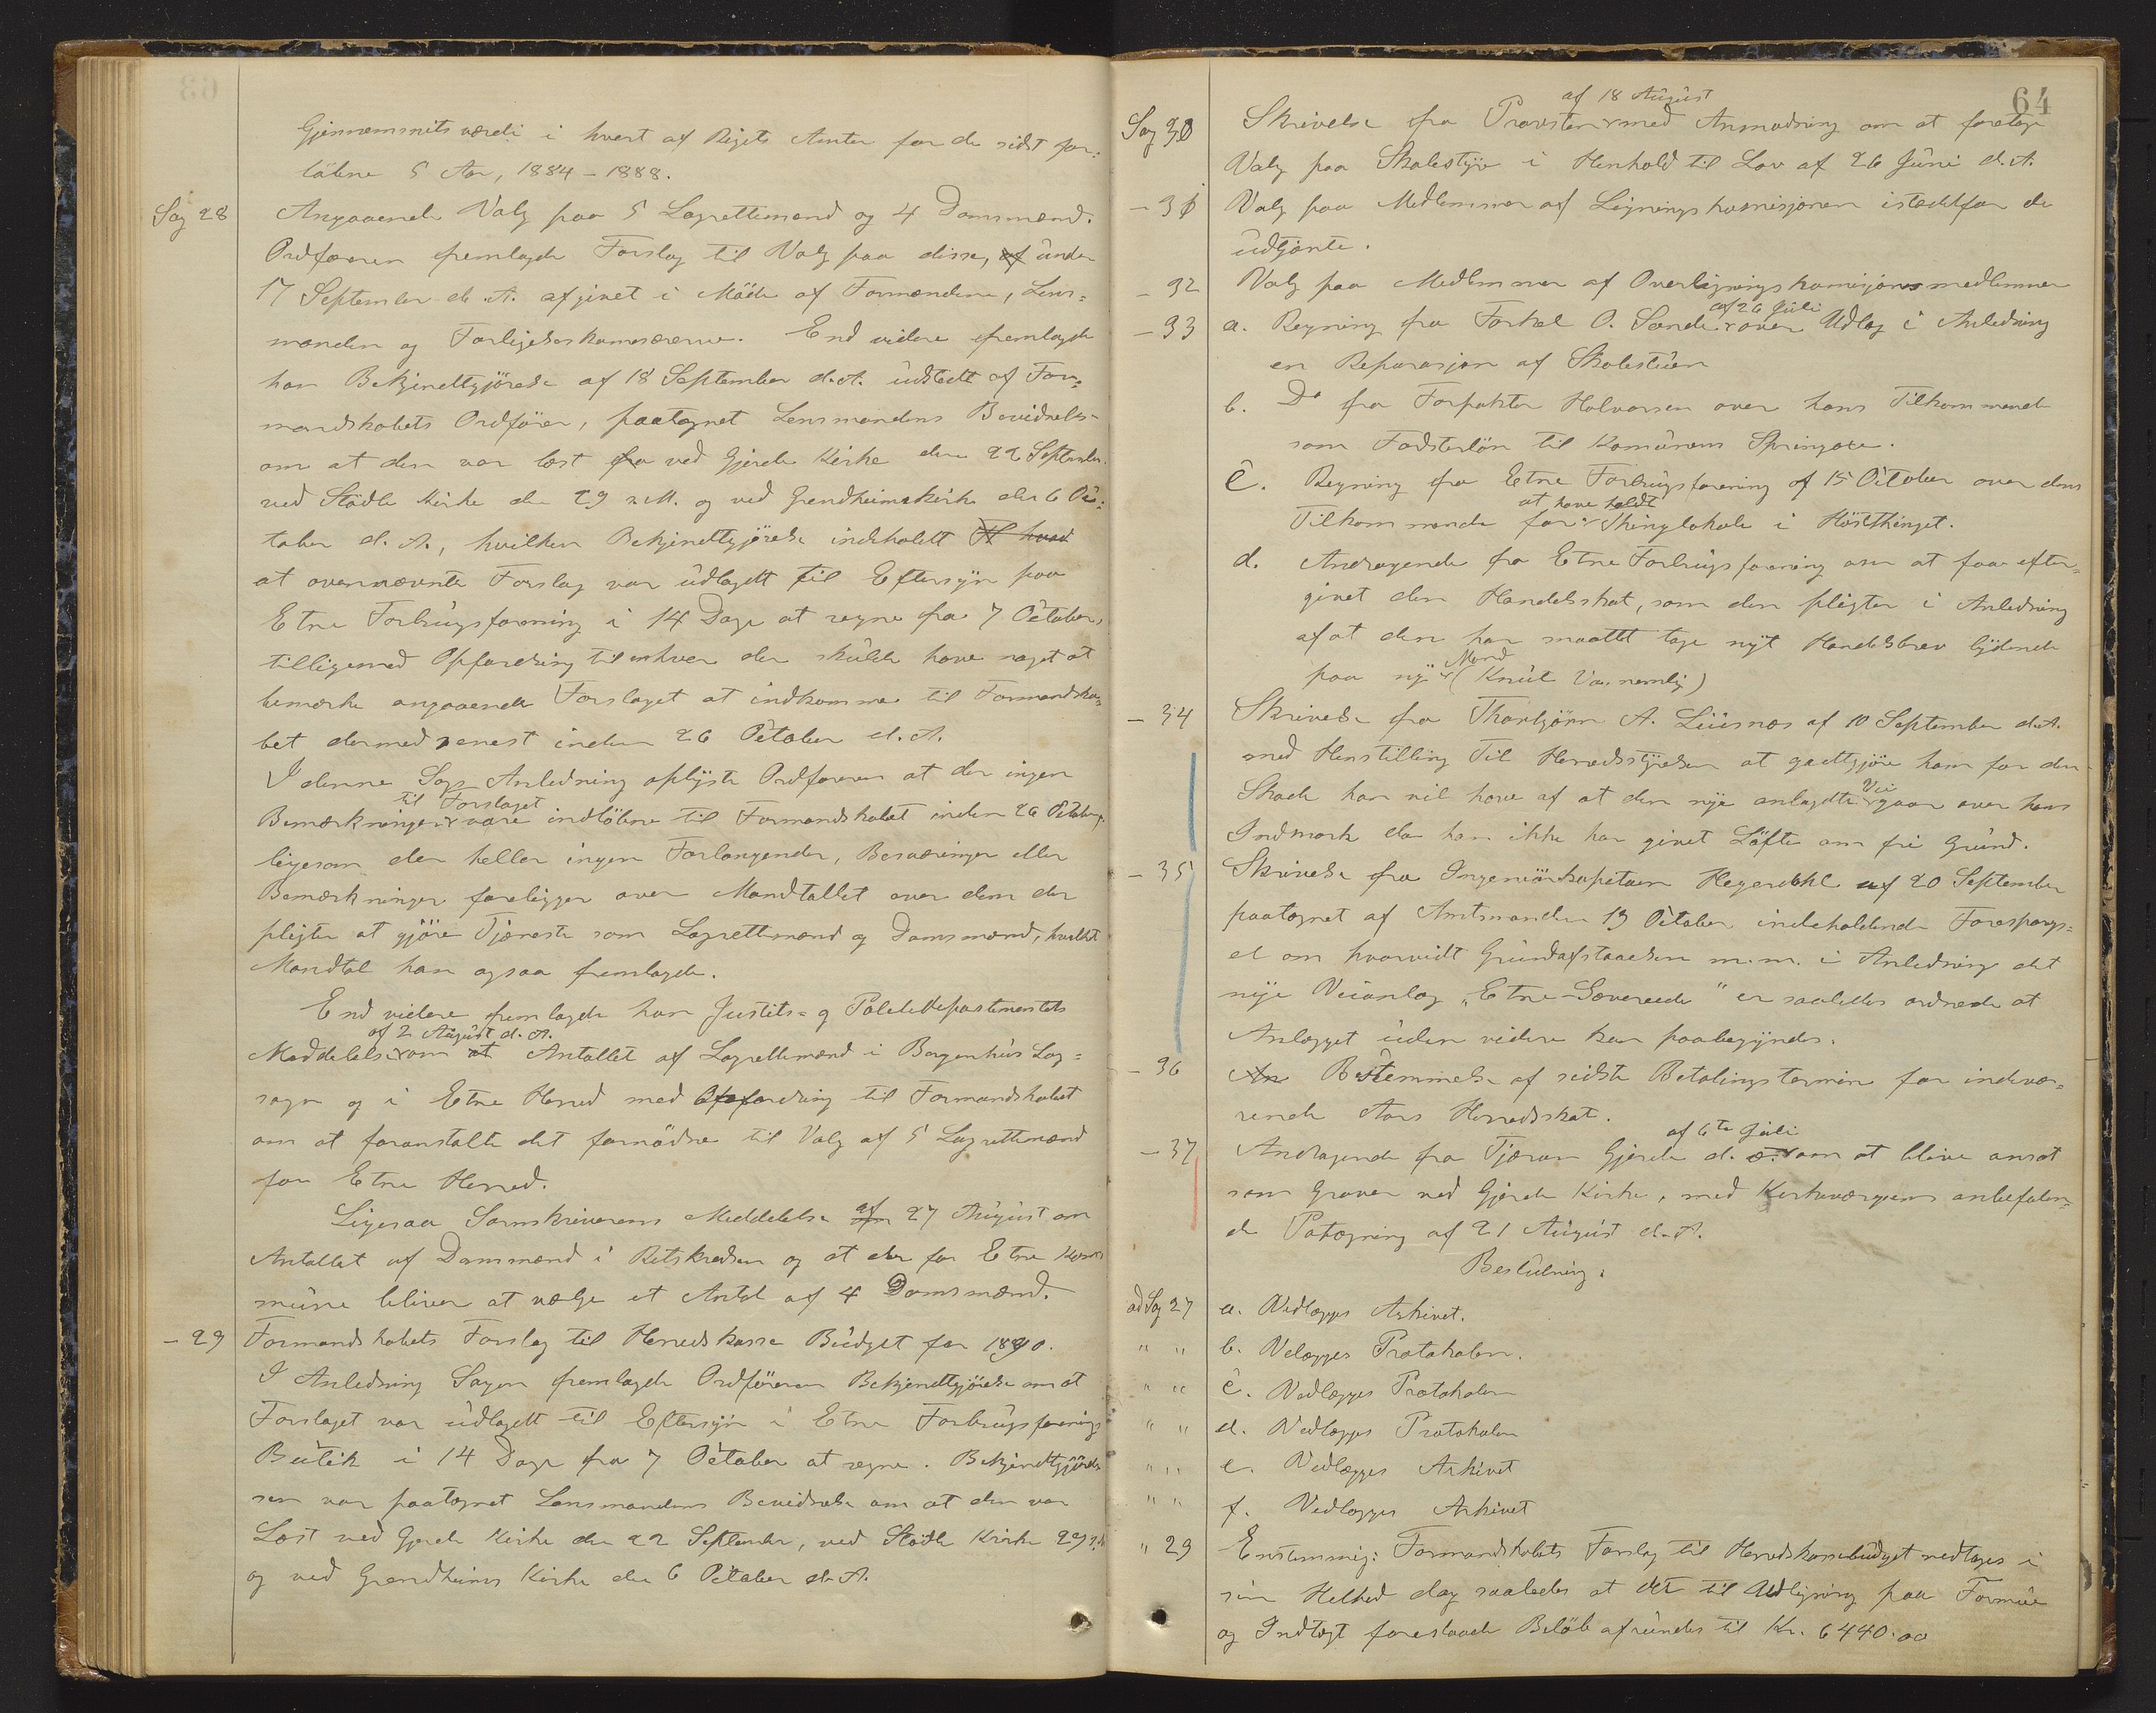 Gjennemsnitsværdi i hvert af Rigets Amter for de sidst for=
løbne 5 Aar, 1884-1888.
Sag 28 Angaaende Valg paa 5 Lagrettemænd og 4 Domsmænd.
Ordføreren fremlagde Forslag til Valg paa disse, af under
17 September d.A. afgivet i Møde af Formændene, Lens=
manden og Forligelseskomisærerne. End videre fremlagde
han Bekjendtgjørelse af 18 September d.A. udstedt af For=
mandskabets Ordfører, paategnet Lensmandens Bevidnelse
om at den var læst fra ved Gjerde Kirke den 22 September
ved Stødle Kirke den 29 s.M. og ved Grendheimskirke den 6 Oc=
tober d.A., hvilken Bekjendtgjørelse indeholdt hvad
at ovennævnte Forslag var udlagdt til Eftersyn paa
Etne Forbrugsforening i 14 Dage at regne fra 7 October,
tilligemed Opfordring til enhver der skulde have noget at
bemærke angaaende Forslaget at indkomme til Formandska=
bet dermed senest inden 26 October d.A.
I denne Sags Anledning oplyste Ordføreren at der ingen
til Forslaget
Bemærkninger vare indløbne til Formandskabet inden 26 October,
ligesom der heller ingen Forlangender, Besværinger eller
Bemærkninger foreligger over Mandtallet over dem der
pligter at gjøre Tjeneste som Lagrettemænd og Domsmænd, hvilket
Mandtal han ogsaa fremlagde.
End videre fremlagde han Justits= og Politidepartementets
af 2 August d.A.
Meddelelse om at Antallet af Lagrettemænd i Bergenhus Lag=
sogn og i Etne Herred med Opfordring til Formandskabet
om at foranstalte det fornødne til Valg af 5 Lagrettemænd
for Etne Herred.
Ligesaa Sorenskriverens Meddelelse om af 27 August om
Antallet af Domsmænd i Retskredsen og at der for Etne Kom
mune bliver at vælge et Antal af 4 Domsmænd.
- 29 Formandskabets Forslag til Herredskasse Budget for 1890.
I Anledning Sagen fremlagde Ordføreren Bekjendtgjørelse om at
Forslaget var udlagdt til Eftersyn i Etne Forbrugsforenings
Butik i 14 Dage fra 7 October at regne. Bekjendtgjørel
sen var paategnet Lensmandens Bevidnelse om at den var
Læst ved Gjerde Kirke den 22 September, ved Stødle Kirke 29
og ved Grendheims Kirke den 6 October d.A.
64
af 18 August
Sag 30 Skrivelse fra Provsten med Anmodning om at foretage
Valg paa Skolestyre i Henhold til Lov af 26 Juni d.A.
- 31 Valg paa Medlemmer af Ligningskomisjonen istedetfor de
udtjente.
- 32 Valg paa Medlemmer af Overligningskomisjonsmedlemmer
af 26 Juli
- 33 a. Regning fra Torkel O. Sande over Udlæg i Anledning
en Reparasjon af Skolestuen
b. Do fra Forpakter Halvorsen over hans Tilkommende
som Fodsterløn til Komunens Springoxe.
c. Regning fra Etne Forbrugsforening af 15 October over dens
at have holdt
Tilkommende for Thinglokale i Høstthinget.
d. Andragende fra Etne Forbrugsforening om at faa efter=
givet den Handelsskat, som den pligter i Anledning
af at den har maattet tage nyt Handelsbrev lydende
Mand
paa ny (Knut nemlig)
- 34 Skrivelse fra Thorbjørn A. Liusnæs af 10 September d.A.
med Henstilling Til Herredsstyrelsen at godtgjøre ham for den
Vei
Skade han vil have af at den nye anlagdte gaar over hans
Indmark da han ikke har givet Løfte om fri Grund.
- 35 Skrivelse fra Ingeniørkaptein af 20 September
paategnet af Amtmanden 19 October indeholdende Forespørgs=
el om hvorvidt Grundafstaaelsen m.m. i Anledning det
nye Veianlæg "Etne-Sævereide" er saaledes ordnede at
Anlægget uden videre kan paabegyndes.
- 36 An Bestemmelse af sidste Betalingstermin for indevæ=
rende Aars Herredsskat.
af 6te Juli
- 37 Andragende fra Tjæran Gjerde d.æ. om at blive ansat
som Graver ved Gjerde Kirke, med Kirkeværgens anbefalen=
de Patægning af 21 August d.A.
Beslutning:
ad Sag 27 a. Vedlægges Arkivet.
" " b. Velægges Protokolen.
" " c. Vedlægges Protokolen
" " d. Vedlægges Protokolen
" " e. Vedlægges Arkivet
" " f. Vedlægges Arkivet
" 29 Enstemmig: Formandskabets Forslag til Herredskassebudget vedtages i
sin Helhed dog saaledes at det til Udligning paa Formue
og Indtægt foreslaaede Beløb afrundes til Kr. 6440.00